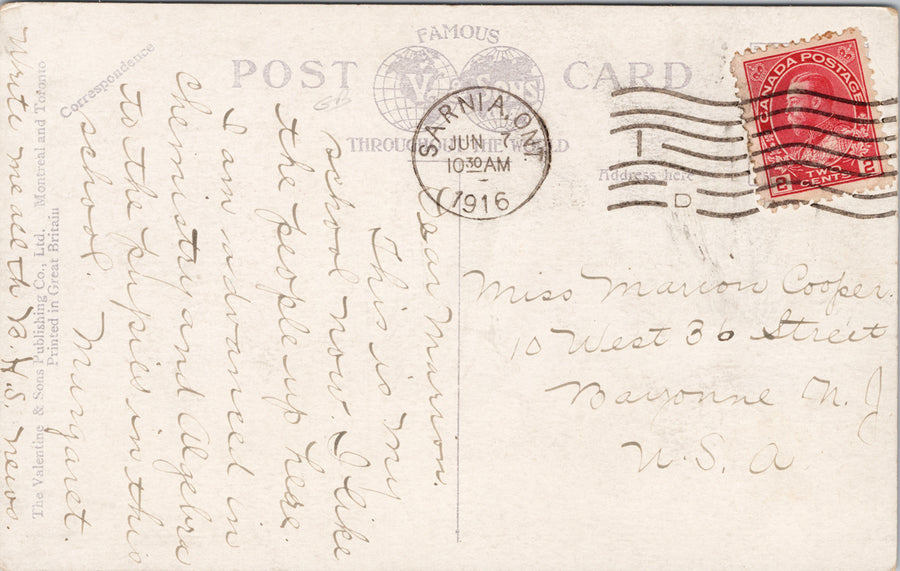 FAMOUS
POST CARD
V & Sons
THROUGHOUT THE WORLD
Correspondence
Address here
SARNIA, ONT.
JUN 7
10 30 AM
1916
D
CANADA POSTAGE
2 TWO CENTS 2
Dear Marion.
This is my
school now. I like
the people up here.
I am advanced in
chemistry and Algebra
to the pupies in this
school.
Margaret.
Write me all the B.H.S. news.
Miss Marion Cooper.
10 West 36 Street
Bayonne N. J.
U. S. A
The Valentine & Sons Publishing Co., Ltd., Montreal and Toronto
Printed in Great Britain